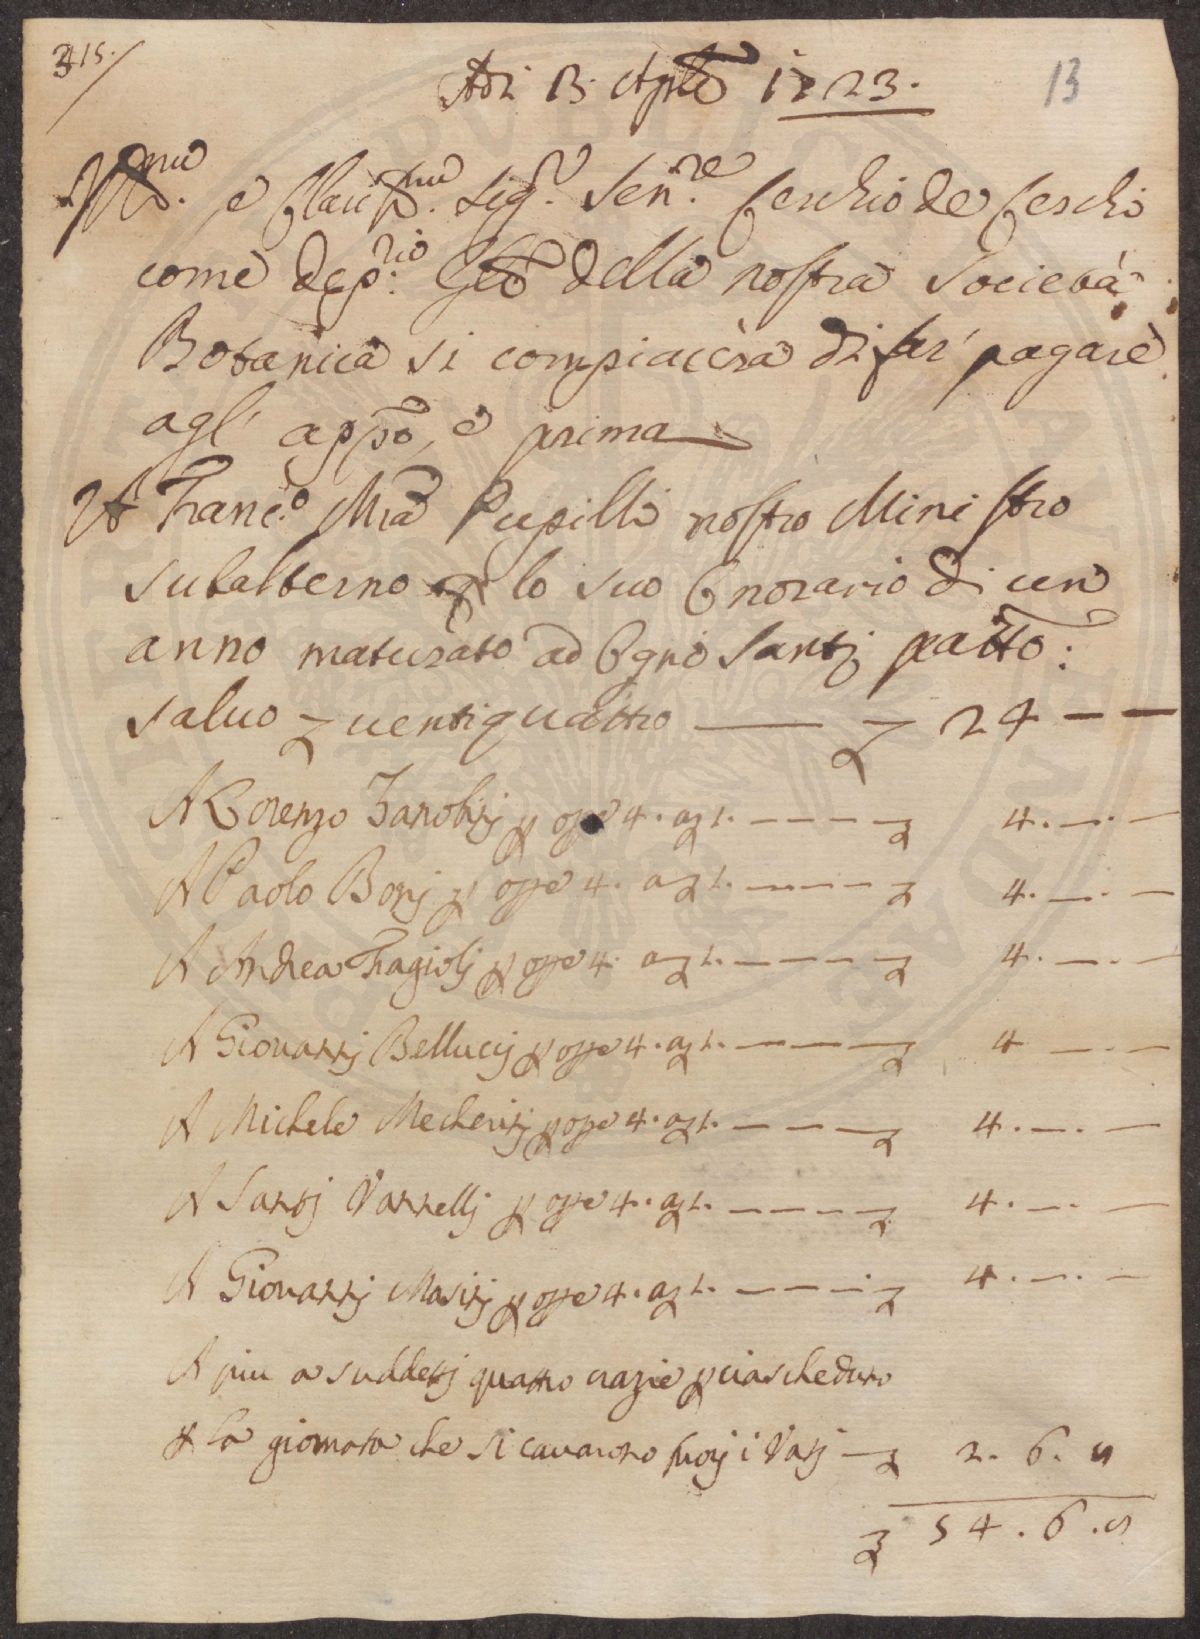 315.
13
Adi 13. Aple 1723.
Illmo. e Clarissmo. Sigr. Senre. Cerchio de Cerchi
come Deprio: Gle della nostra Società
Botanica si compiacerà di far pagare
agl' appo, e prima
A Franco. Mra Pupilli nostro Ministro
subalterno p lo suo Onorario di un
anno maturato ad Ogni Santi patto:
saluo z uentiquattro z 24 — —
A Lorenzo Zanobinj p opre 4. a z 1. — — — z 4. —. —
A Paolo Bonj p opre 4. a z 1. — — — z 4. —. —
A Andrea Fragiolj p opre 4. a z 1. — — — z 4. —. —
A Giouannj Belluccj p opre 4. a z 1. — — — z 4 —. —
A Michele Mecherinj p opre 4. a z 1. — — — z 4. —. —
A Santj Vannellj p opre 4. a z 1. — — — z 4. —. —
A Giouannj Masinj p opre 4. a z 1. — — — z 4. —. —
A piu a suddettj quattro crazie p ciascheduno
p la giornata che si cauarono fuorj i Vasj — z 2. 6. 8
z 54. 6. 8